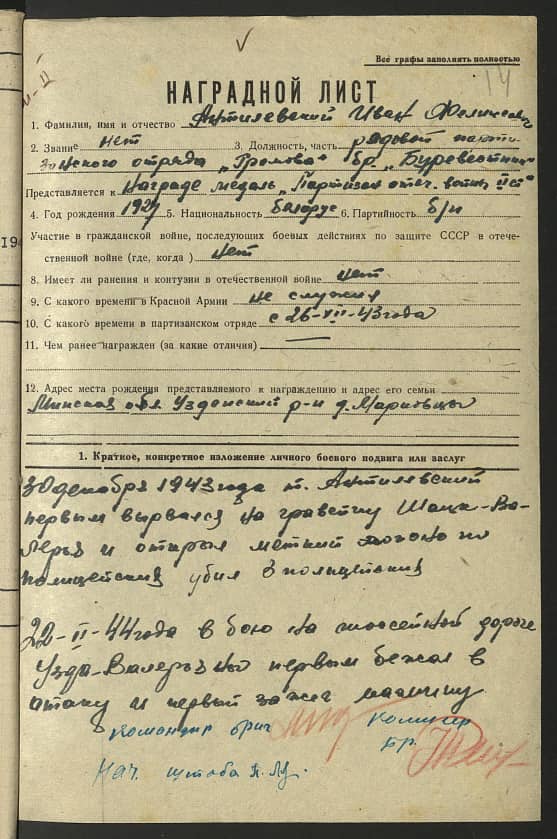 Все графы заполнять полностью
14
НАГРАДНОЙ ЛИСТ
1. Фамилия, имя и отчество Антилевский Иван Феликсович
2. Звание нет 3. Должность, часть рядовой парти-
занского отряда „Громова" бр. „Буревестник"
Представляется к награде медаль „Партизан отеч. войны II ст"
4. Год рождения 1927 5. Национальность белорус 6. Партийность б/п
Участие в гражданской войне, последующих боевых действиях по защите СССР в отече-
ственной войне (где, когда) нет
8. Имеет ли ранения и контузии в отечественной войне нет
9. С какого времени в Красной Армии не служил
10. С какого времени в партизанском отряде с 26-VII-43 года
11. Чем ранее награжден (за какие отличия) —
12. Адрес места рождения представляемого к награждению и адрес его семьи
Минская обл Узденский р-н д.
1. Краткое, конкретное изложение личного боевого подвига или заслуг
30 декабря 1943 года т. Антилевский
первым вырвался на гравейку Шацк-Ва-
лерья и открыл меткий по
полицейским убил 3 полицейских
22-II-44 года в бою на шоссейной дороге
Узда-Валерьяны первым бежал в
атаку и первый зажег машину
Командир бриг комиссар
бр.
Нач. штаба
19